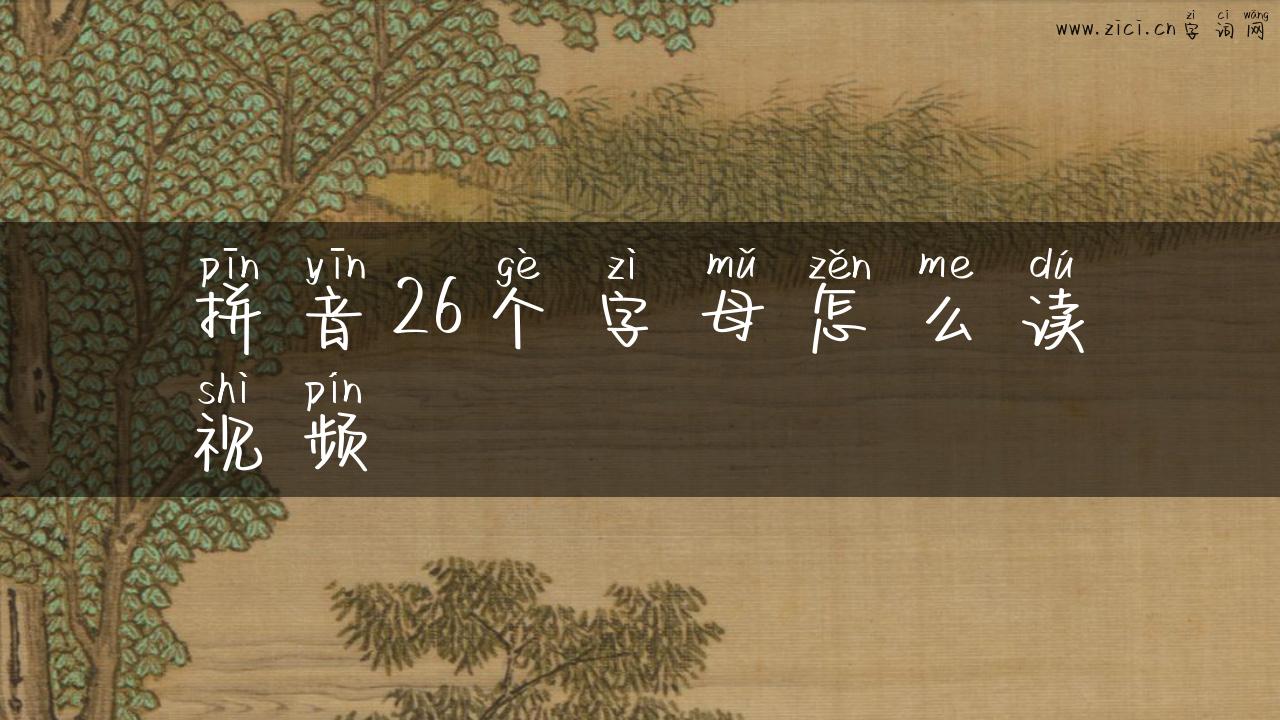 zì cí wǎng
www.zici.cn字词网
pīn yīn gè zì mǔ zěn me dú
拼音26个字母怎么读
shì pín
视频